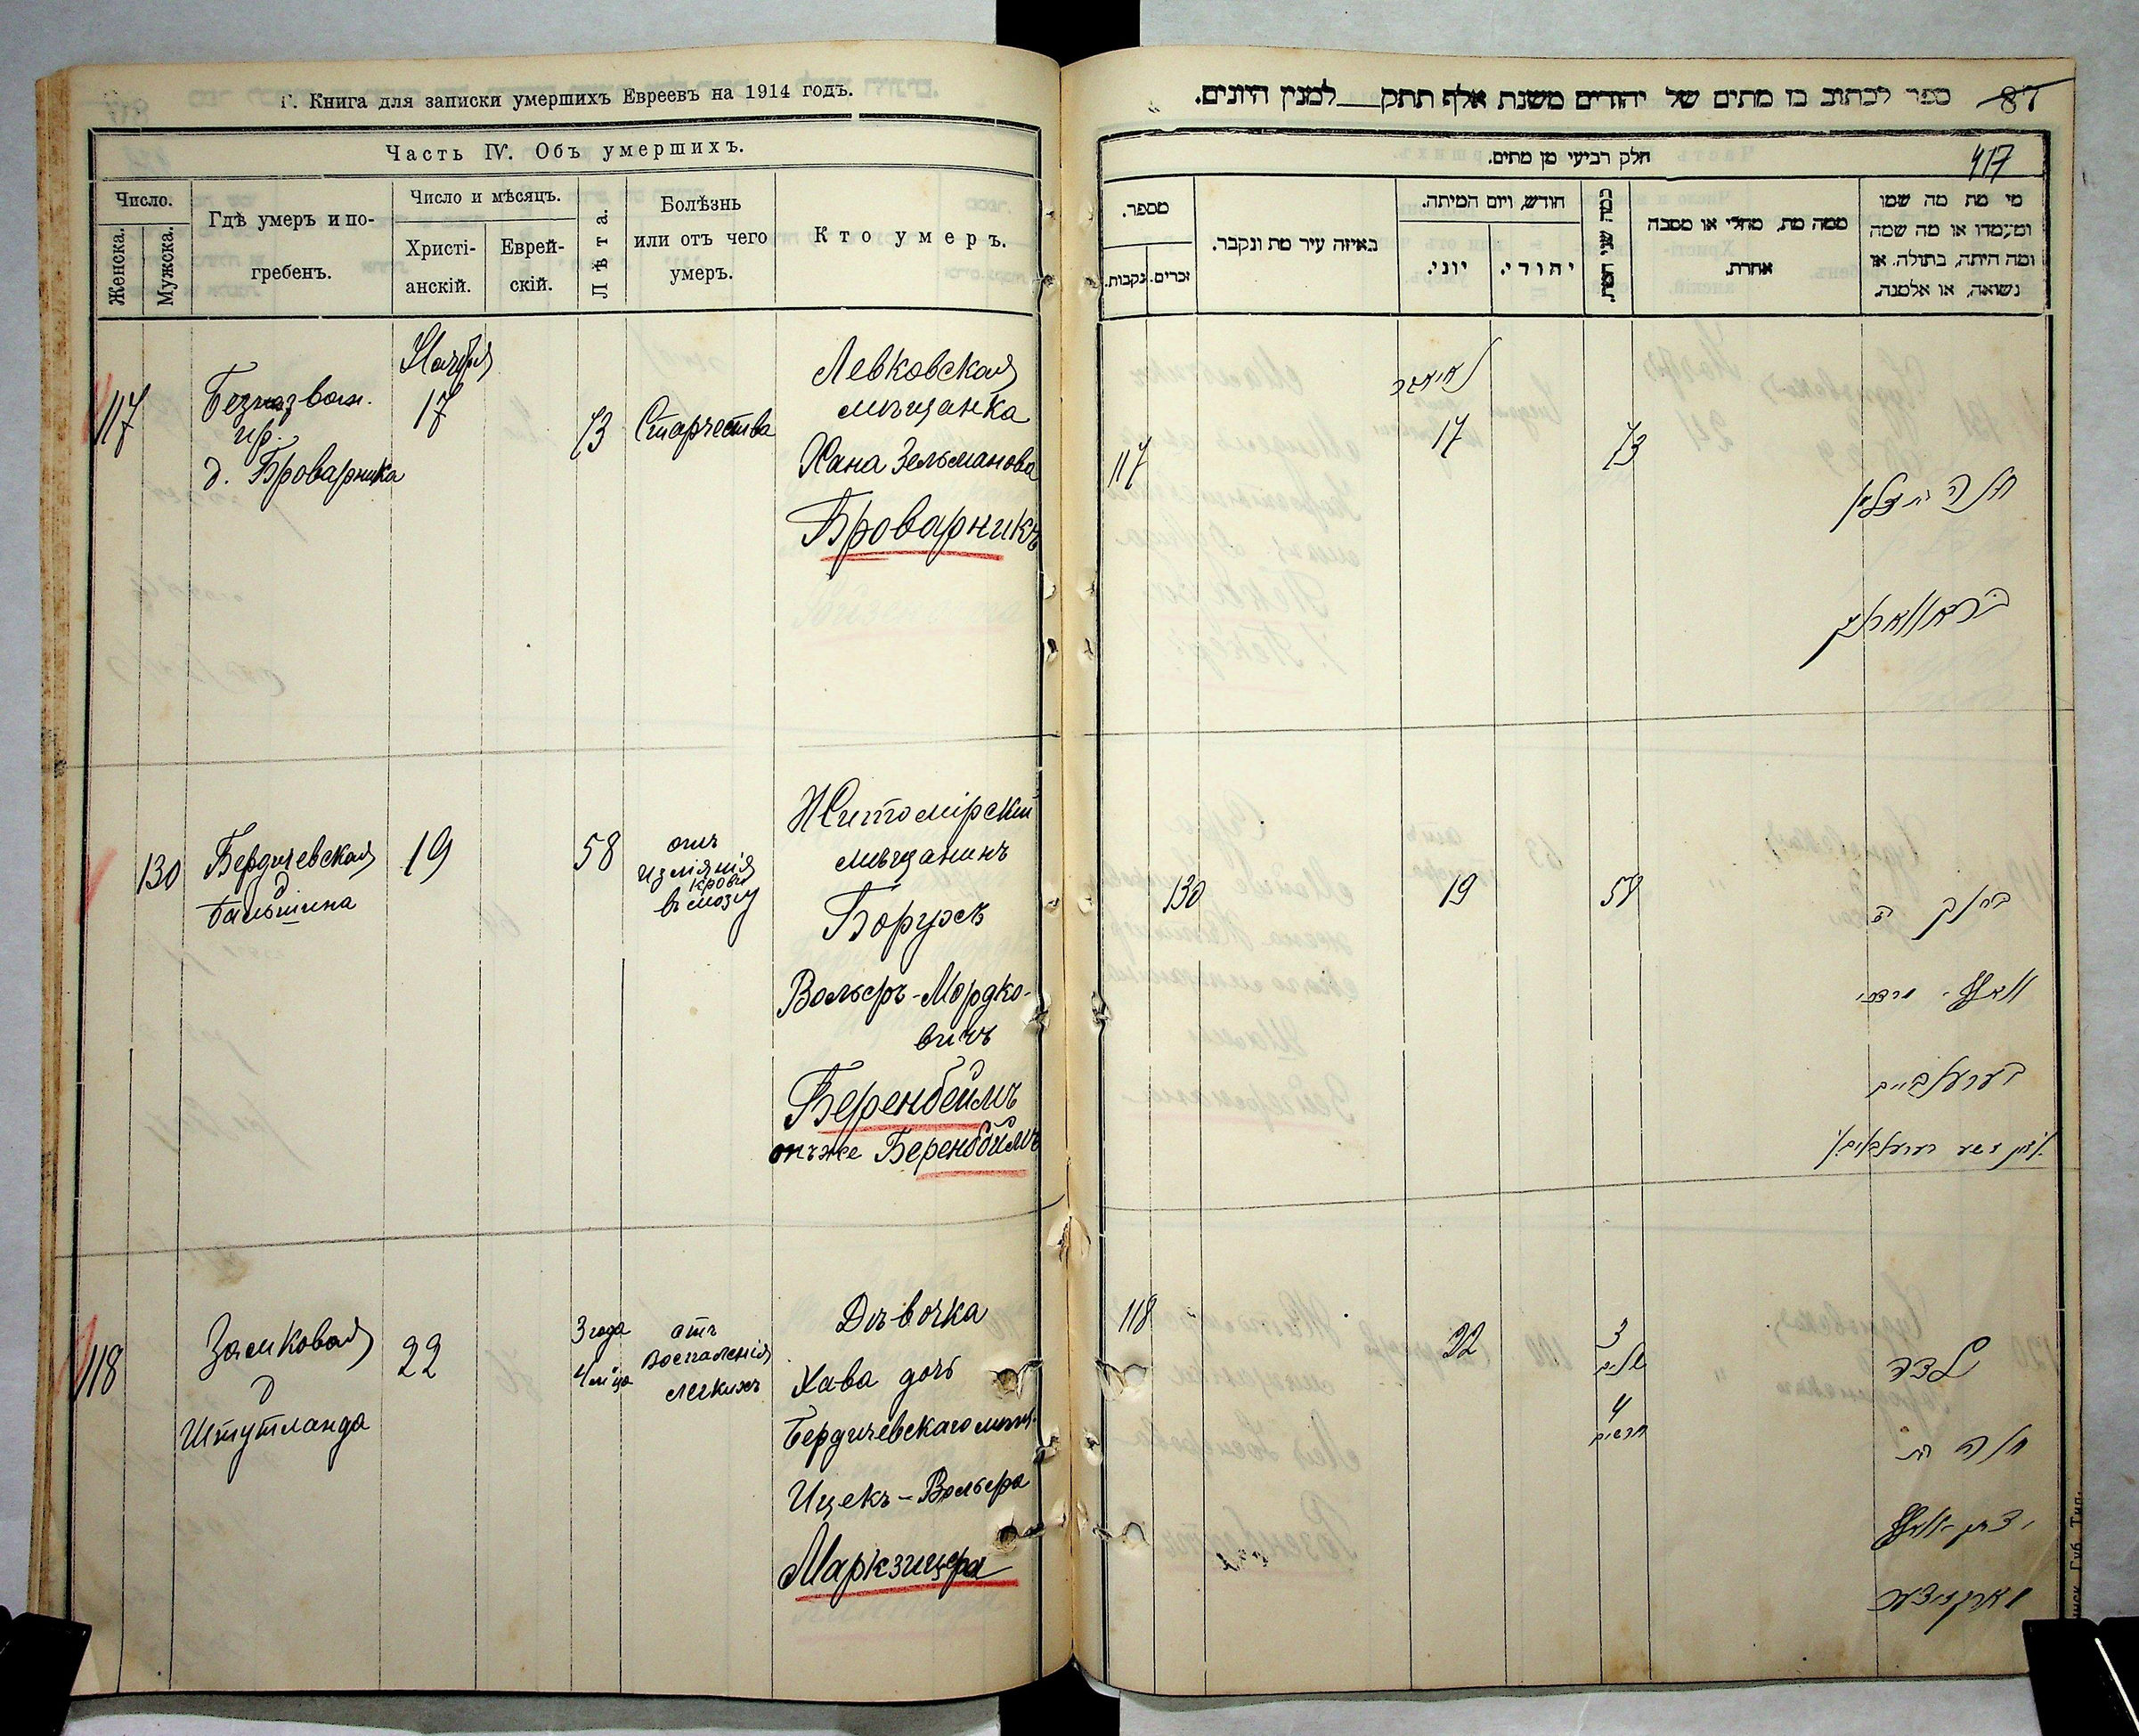 Г. Книга для записки умершихъ Евреевъ на 1914 годъ.
Часть IV. Объ умершихъ.
Число.
Женска.
Мужска.
Гдѣ умеръ и по-
гребенъ.
Число и мѣсяцъ.
Христі-
анскій.
Еврей-
скій.
Лѣта.
Болѣзнь
или отъ чего
умеръ.
Кто умеръ.
117
Безназван.
д. Броварника
17
73
Старчества
Левковская
мѣщанка
Хана Зельманова
Броварникъ
130
Бердичевская
д
19
58
отъ
изліянія
крови
въ мозгу
Житомірскій
мѣщанинъ
Борухъ
Вольфъ-Мордко-
вичъ
Беренбеймъ
онъ же Беренбоймъ
118
Замковая
д
Штутланда
22
3 года
4 м-ца
отъ
воспаленія
легкихъ
Дѣвочка
Хава дочь
Бердичевскаго мѣщ.
Ицекъ-Вольфа
Маркзицера
ספר לכתוב בו מתים של יהודים משנת אלף תתק למנין היונים.
87
417
חלק רביעי מן מתים.
מספר.
נקבות.
זכרים.
באיזה עיר מת ונקבר.
חודש, ויום המיתה.
יוני.
יהודי.
כמה שני המת
ממה מת, מחלי או מסבה
אחרת.
מי מת מה שמו
ומעמדו או מה שמה
ומה היתה, בתולה. או
נשואה, או אלמנה.
117
17
73
130
19
58
ברוך ב
118
22
3
שנים
4
חדשים
ילדה
חוה בת